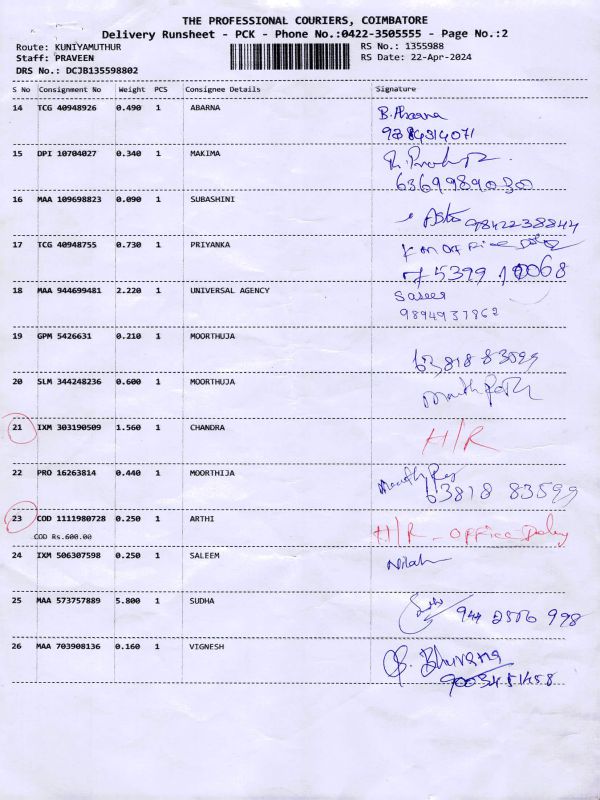 THE PROFESSIONAL COURIERS, COIMBATORE
Delivery Runsheet - PCK - Phone No.:0422-3505555 - Page No.:2
Route: KUNIYAMUTHUR RS No.: 1355988
Staff: PRAVEEN RS Date: 22-Apr-2024
DRS No.: DCJB135598802
S No Consignment No Weight PCS Consignee Details Signature
14 TCG 40948926 0.490 1 ABARNA B. Abarna
9884314071
15 DPI 10704027 0.340 1 MAKIMA
6369989030
16 MAA 109698823 0.090 1 SUBASHINI
9842238844
17 TCG 40948755 0.730 1 PRIYANKA
18 MAA 944699481 2.220 1 UNIVERSAL AGENCY
9894937862
19 GPM 5426631 0.210 1 MOORTHUJA
63818 83599
20 SLM 344248236 0.600 1 MOORTHUJA
21 IXM 303190509 1.560 1 CHANDRA H/R
22 PRO 16263814 0.440 1 MOORTHIJA
63818 83599
23 COD 1111980728 0.250 1 ARTHI H/R - office Delay
COD Rs.600.00
24 IXM 506307598 0.250 1 SALEEM
25 MAA 573757889 5.800 1 SUDHA 944 2506 998
26 MAA 703908136 0.160 1 VIGNESH Bhuvana